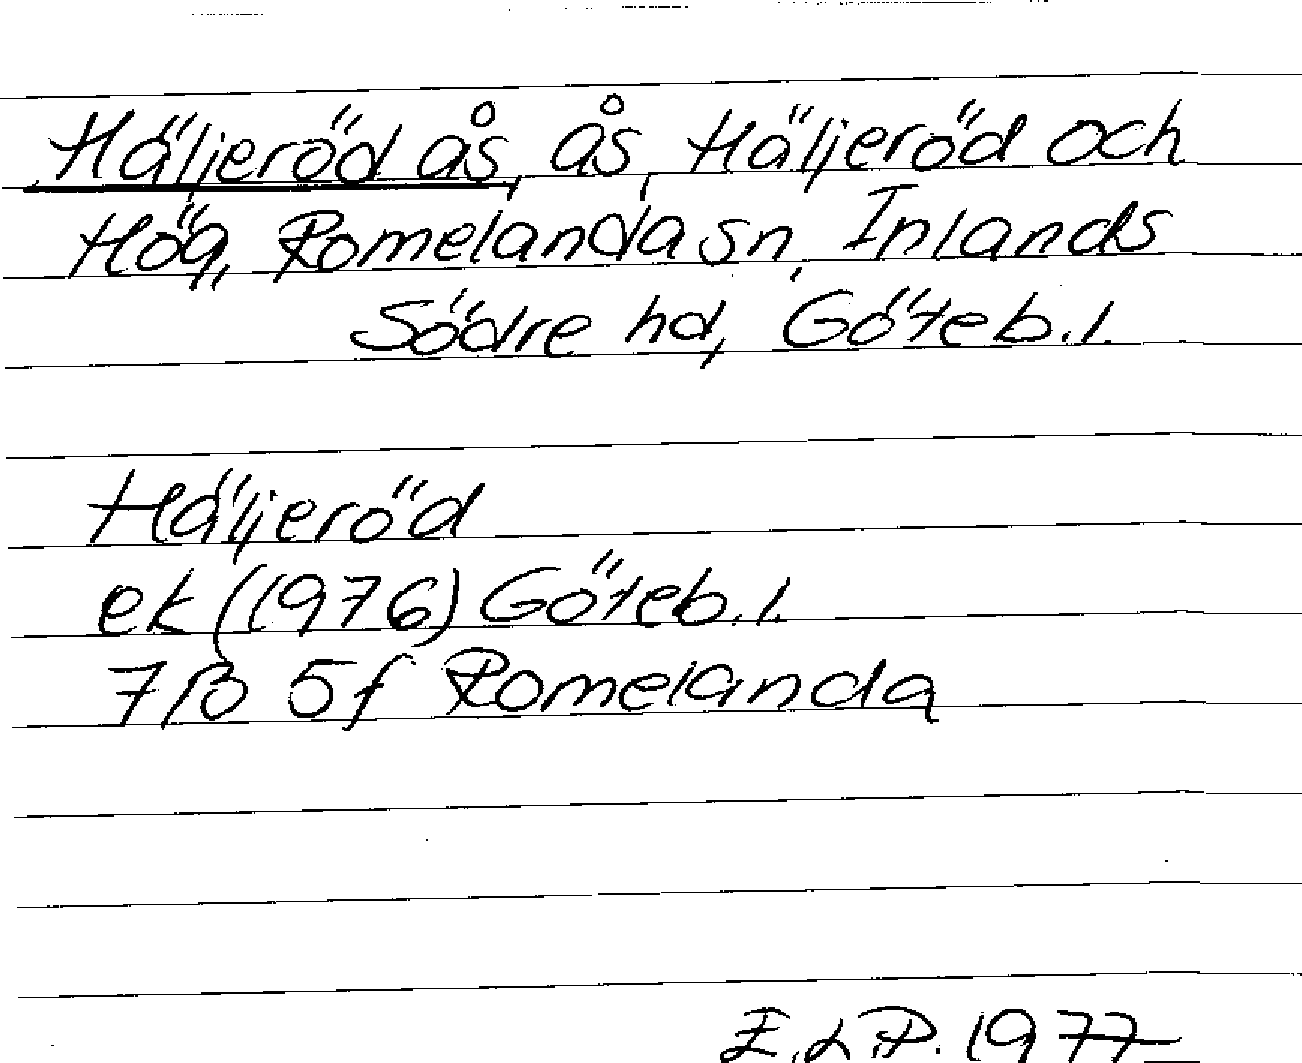 Häljeröd ås, ås, Häljeröd och
Hög, Romelanda sn, Inlands
Södre hd, Göteb.l.
Häljeröd
ek (1976) Göteb.l.
7B 5f Romelanda
E.L.P. 1977